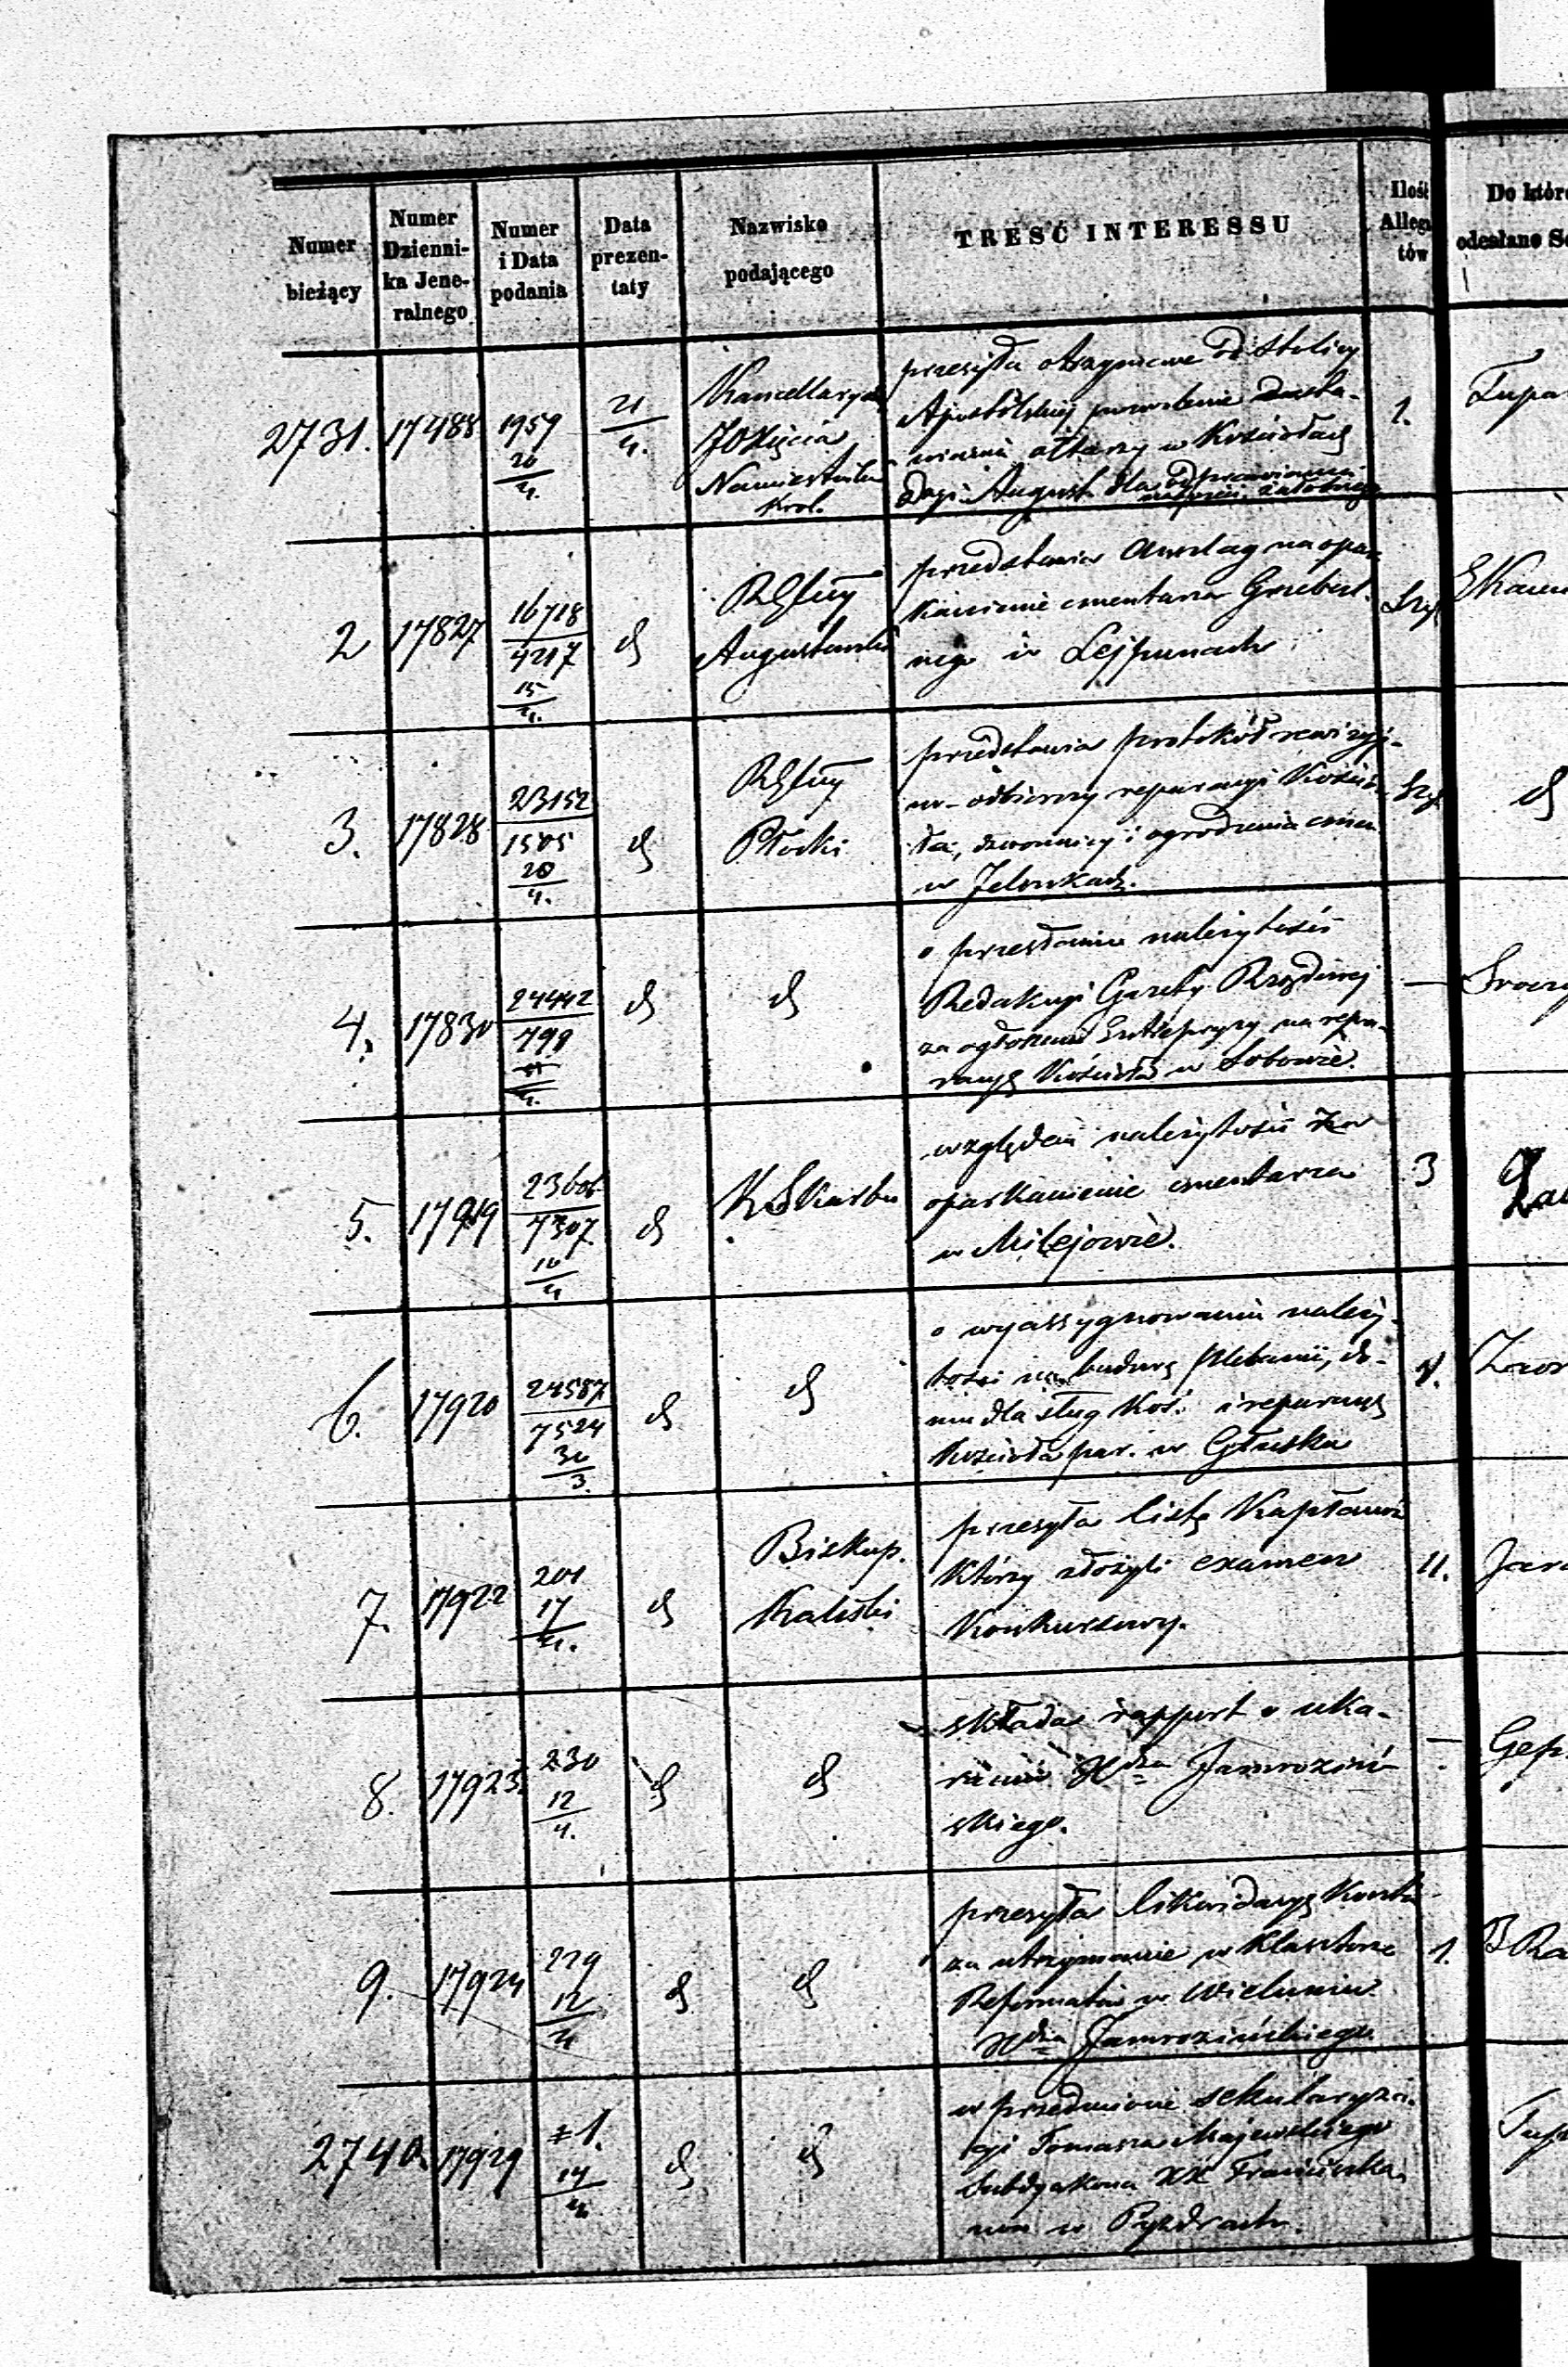 Numer bieżący
Numer Dzienni-
ka Jene-
ralnego
Numer
i Data
podania
Data
prezen-
taty
Nazwisko
podającego
TREŚĆ INTERESSU
Ilość
Allega
tów
Do któr
odesłano Se
2731. 17488 1959 20/4. 21/4.
Kancellarya
JO Xięcia
Namiestnika
Krol.
przesyła otrzymane od Stolicy
Apostolskiej pozwolenie
ołtarzy w Kościołach
August. dla odprawiania
1.
2 17827 16718/4217 15/4. d
RGbny
Augustowski
przedstawia anszlag na opar-
kanienie cmentarza Grzebal-
nego w Lejpunach
Szyt
3. 17828 23152/1505 20/4. d
RGbny
Płocki
przedstawia protokół rewizyj-
no-odbiorczy reparacyi Kościo-
ła, dzwonnicy i ogrodzenia cmen.
w Jelonkach.
Szyt
d
4. 17830 24442/799 d d
o przesłanie należytości
Redakcyi Gazety Rządowej
za ogłoszenie Entrepryzy na repa-
racyę Kościoła w Łobowie.
—
5. 17919 7307 10/4 d
K. Skarbu
względem należytości za
oparkanienie cmentarza
w Milejowie.
3
6. 17920 24587/7524 30/3. d d
o wyassygnowanie należy-
tości na budowę Plebanii, do-
mu dla sług Koś. i reparacyę
Kościoła par. w Głusku
7. 17922 201 17/4. d
Biskup.
Kaliski
przesyła listę Kapłanów
którzy złożyli examen
Konkursowy.
11.
8. 17923. 230 12/4. d d
składa rapport o uka-
raniu Xdza Jamroziń-
skiego.
—
9. 17924 229 12/4 d d
przesyła likwidacyę Kosztów
za utrzymanie w Klasztorze
Reformatów w Wieluniu
Xdza Jamrozińskiego
1.
2740. 17929 1. 14/4. d d
w przedmiocie sekularyza-
cyi Tomasza Majewskiego
Subdyakona XX Franciszka-
nów w Pyzdrach.